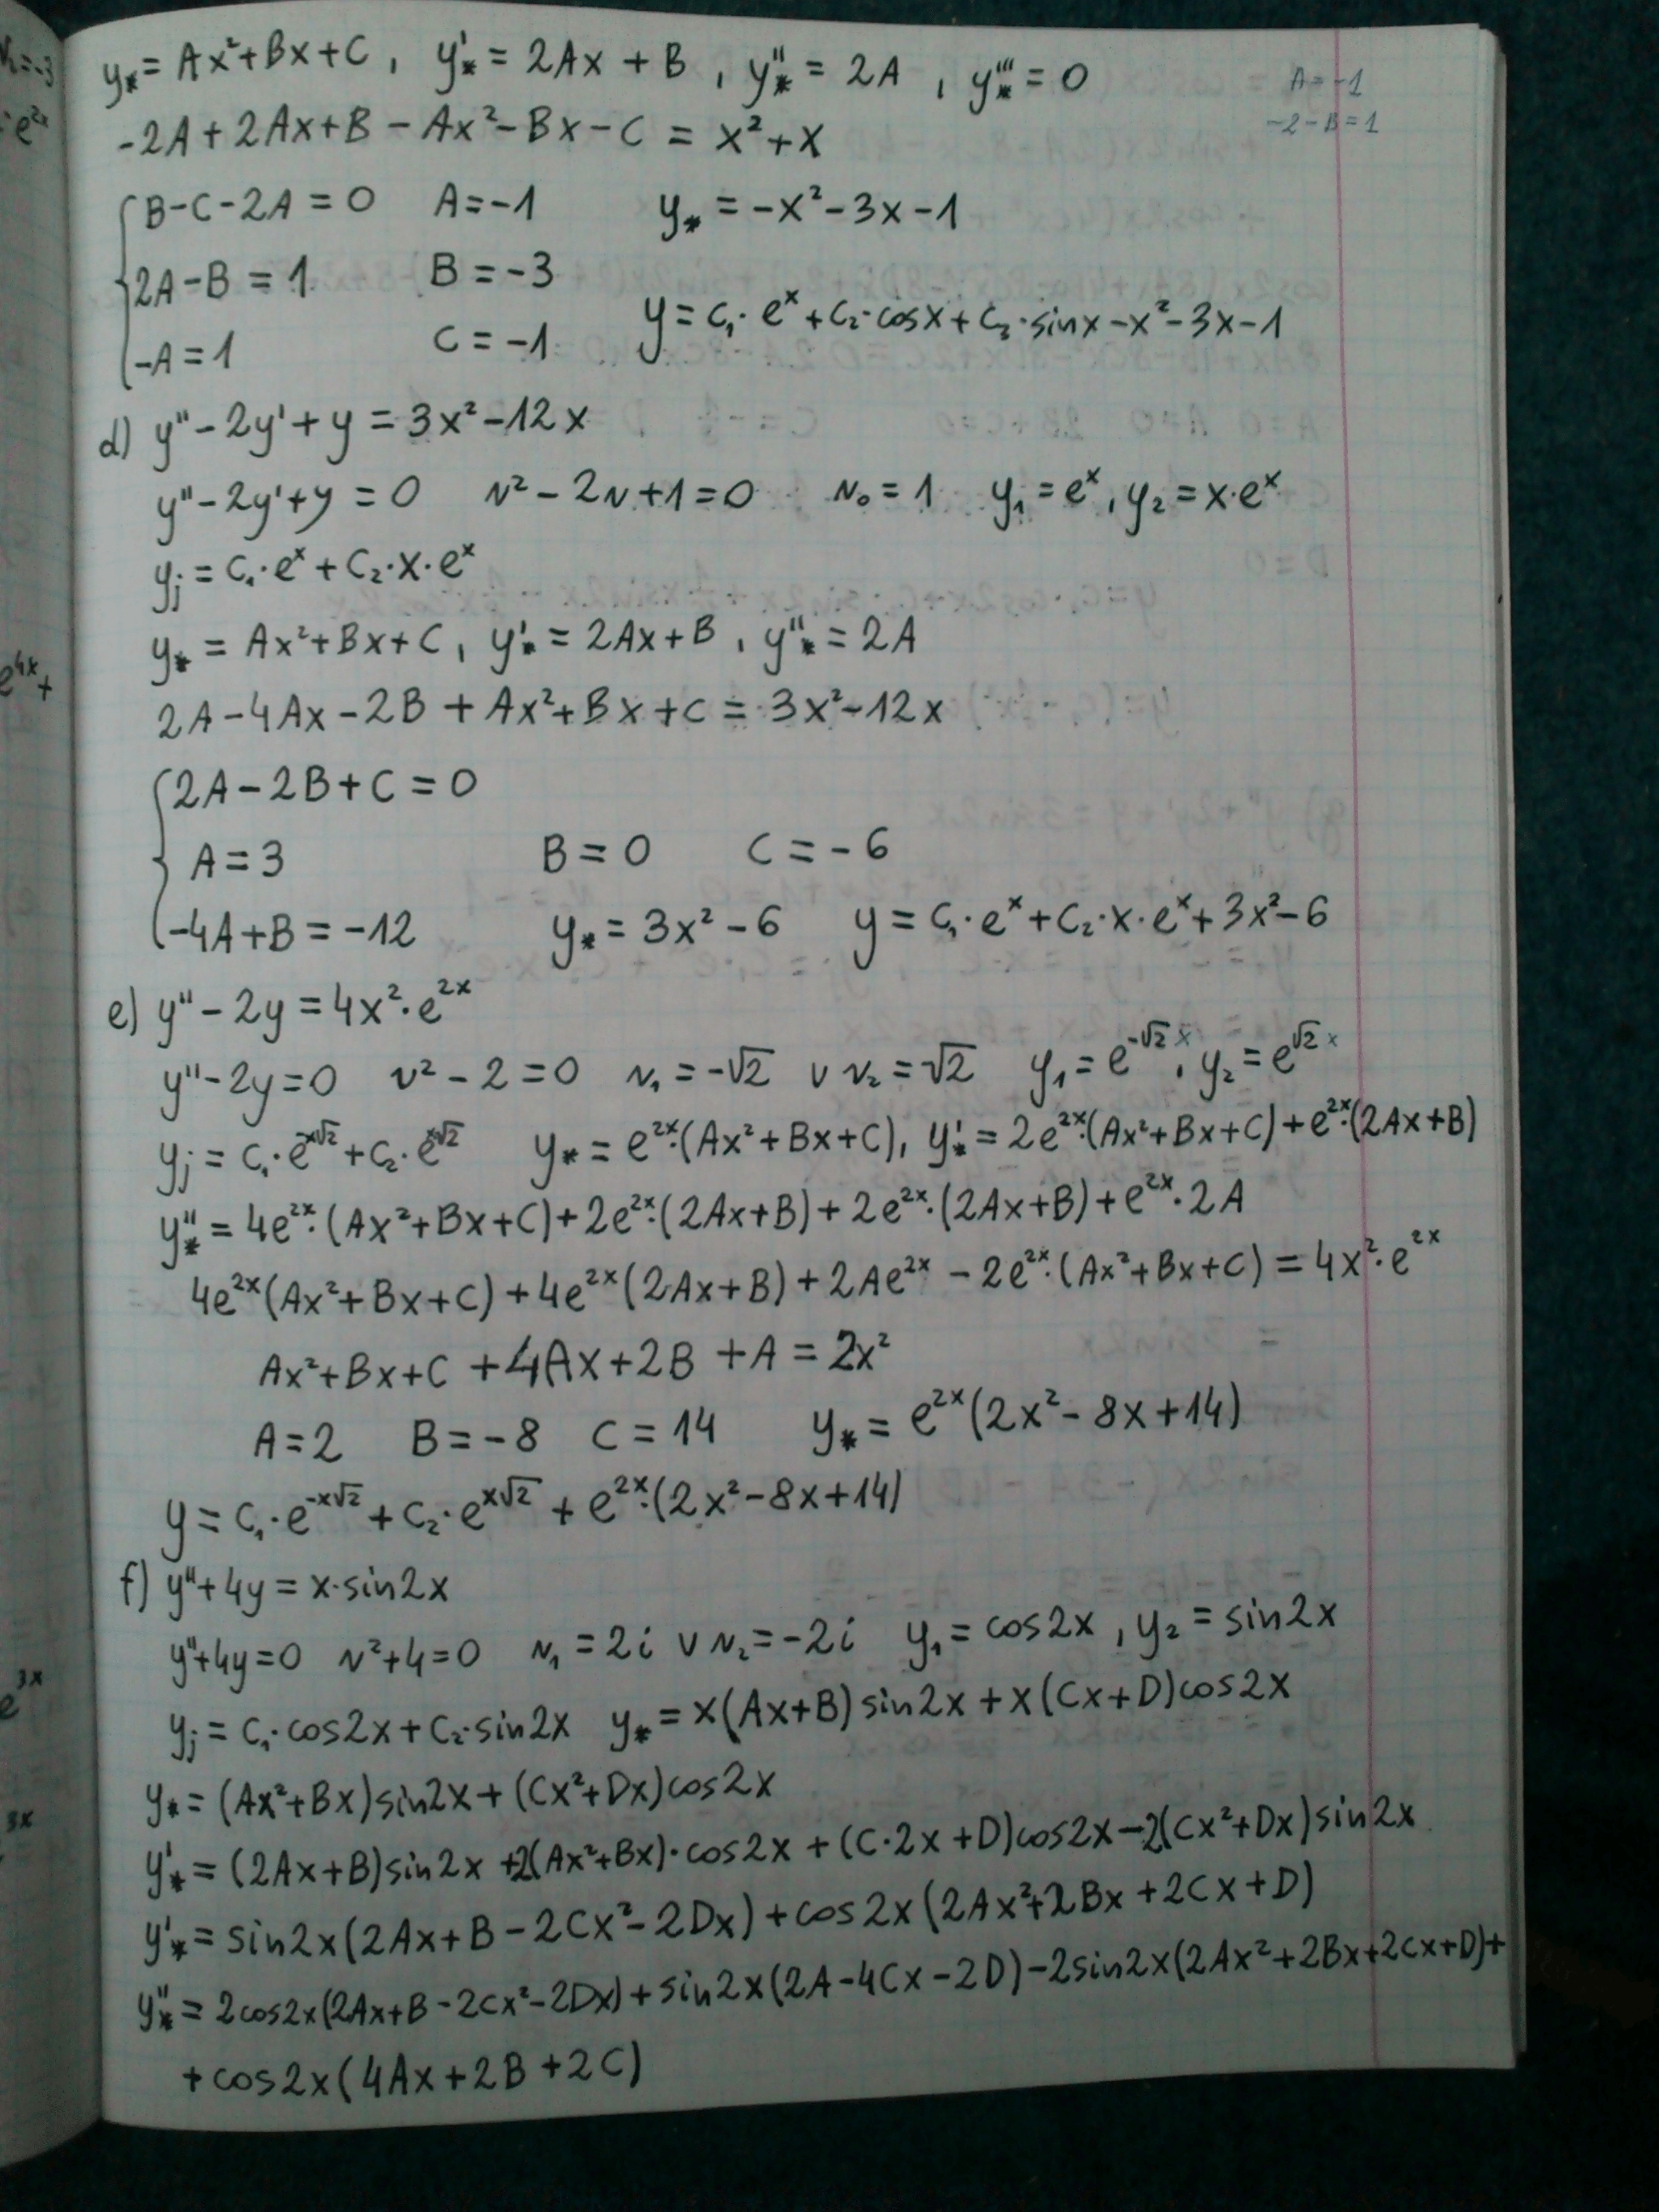 y* = Ax²+Bx+C, y*' = 2Ax + B, y*'' = 2A, y*''' = 0
A=-1
-2-B=1
-2A+2Ax+B-Ax²-Bx-C = x²+x
B-C-2A=0 A=-1 y* = -x²-3x-1
2A-B=1 B=-3
y = C₁·eˣ+C₂·cosx+C₃·sinx-x²-3x-1
-A=1 C=-1
d) y''-2y'+y = 3x²-12x
y''-2y'+y=0 r²-2r+1=0 r₀=1 y₁=eˣ, y₂=x·eˣ
yj = C₁·eˣ+C₂·x·eˣ
y* = Ax²+Bx+C, y*' = 2Ax+B, y*'' = 2A
2A-4Ax-2B+Ax²+Bx+C = 3x²-12x
2A-2B+C=0
A=3 B=0 C=-6
-4A+B=-12 y* = 3x²-6 y = C₁·eˣ+C₂·x·eˣ+3x²-6
e) y''-2y = 4x²·e^2x
y''-2y=0 r²-2=0 r₁=-√2 ∨ r₂=√2 y₁=e^-√2 x, y₂=e^√2 x
yj = C₁·e^-x√2+C₂·e^x√2 y* = e^2x·(Ax²+Bx+C), y*' = 2e^2x·(Ax²+Bx+C)+e^2x·(2Ax+B)
y*'' = 4e^2x·(Ax²+Bx+C)+2e^2x·(2Ax+B)+2e^2x·(2Ax+B)+e^2x·2A
4e^2x(Ax²+Bx+C)+4e^2x(2Ax+B)+2Ae^2x-2e^2x·(Ax²+Bx+C) = 4x²·e^2x
Ax²+Bx+C+4Ax+2B+A = 2x²
A=2 B=-8 C=14 y* = e^2x(2x²-8x+14)
y = C₁·e^-x√2+C₂·e^x√2+e^2x·(2x²-8x+14)
f) y''+4y = x·sin2x
y''+4y=0 r²+4=0 r₁=2i ∨ r₂=-2i y₁=cos2x, y₂=sin2x
yj = C₁·cos2x+C₂·sin2x y* = x(Ax+B)sin2x+x(Cx+D)cos2x
y* = (Ax²+Bx)sin2x+(Cx²+Dx)cos2x
y*' = (2Ax+B)sin2x+2(Ax²+Bx)·cos2x+(C·2x+D)cos2x-2(Cx²+Dx)sin2x
y*' = sin2x(2Ax+B-2Cx²-2Dx)+cos2x(2Ax²+2Bx+2Cx+D)
y*'' = 2cos2x(2Ax+B-2Cx²-2Dx)+sin2x(2A-4Cx-2D)-2sin2x(2Ax²+2Bx+2Cx+D)+
+cos2x(4Ax+2B+2C)